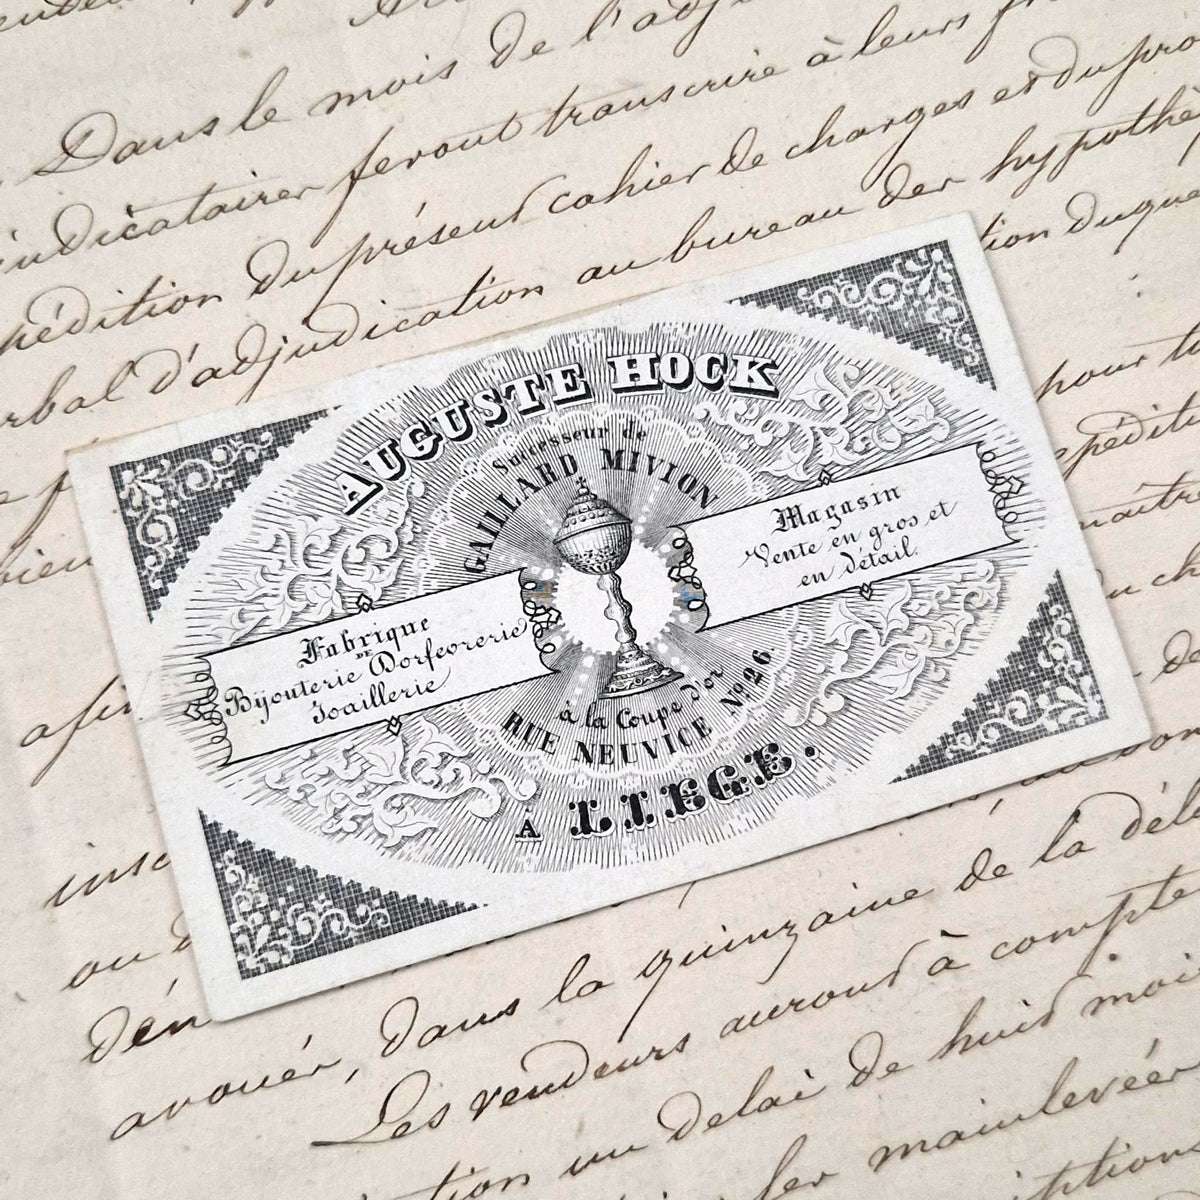 Dans le mois de l'adj
judicataires feront transcrire à leurs fr
pédition du présent cahier de charges et du pro
rbal d'adjudication au bureau des hypothè
tion duque
AUGUSTE HOCK
Successeur de
GAILLARD MIVION
Fabrique
DE
Bijouterie Dorfeorerie
Joaillerie
Magasin
Vente en gros et
en détail.
à la Coupe d'or
RUE NEUVICE Nº 26.
À LIEGE.
pour
afin
de
ins
ou
dén
avouér, dans la quinzaine de la dél
Les vendeurs auront à compte
tion un delai de huit moi
mainlevéer